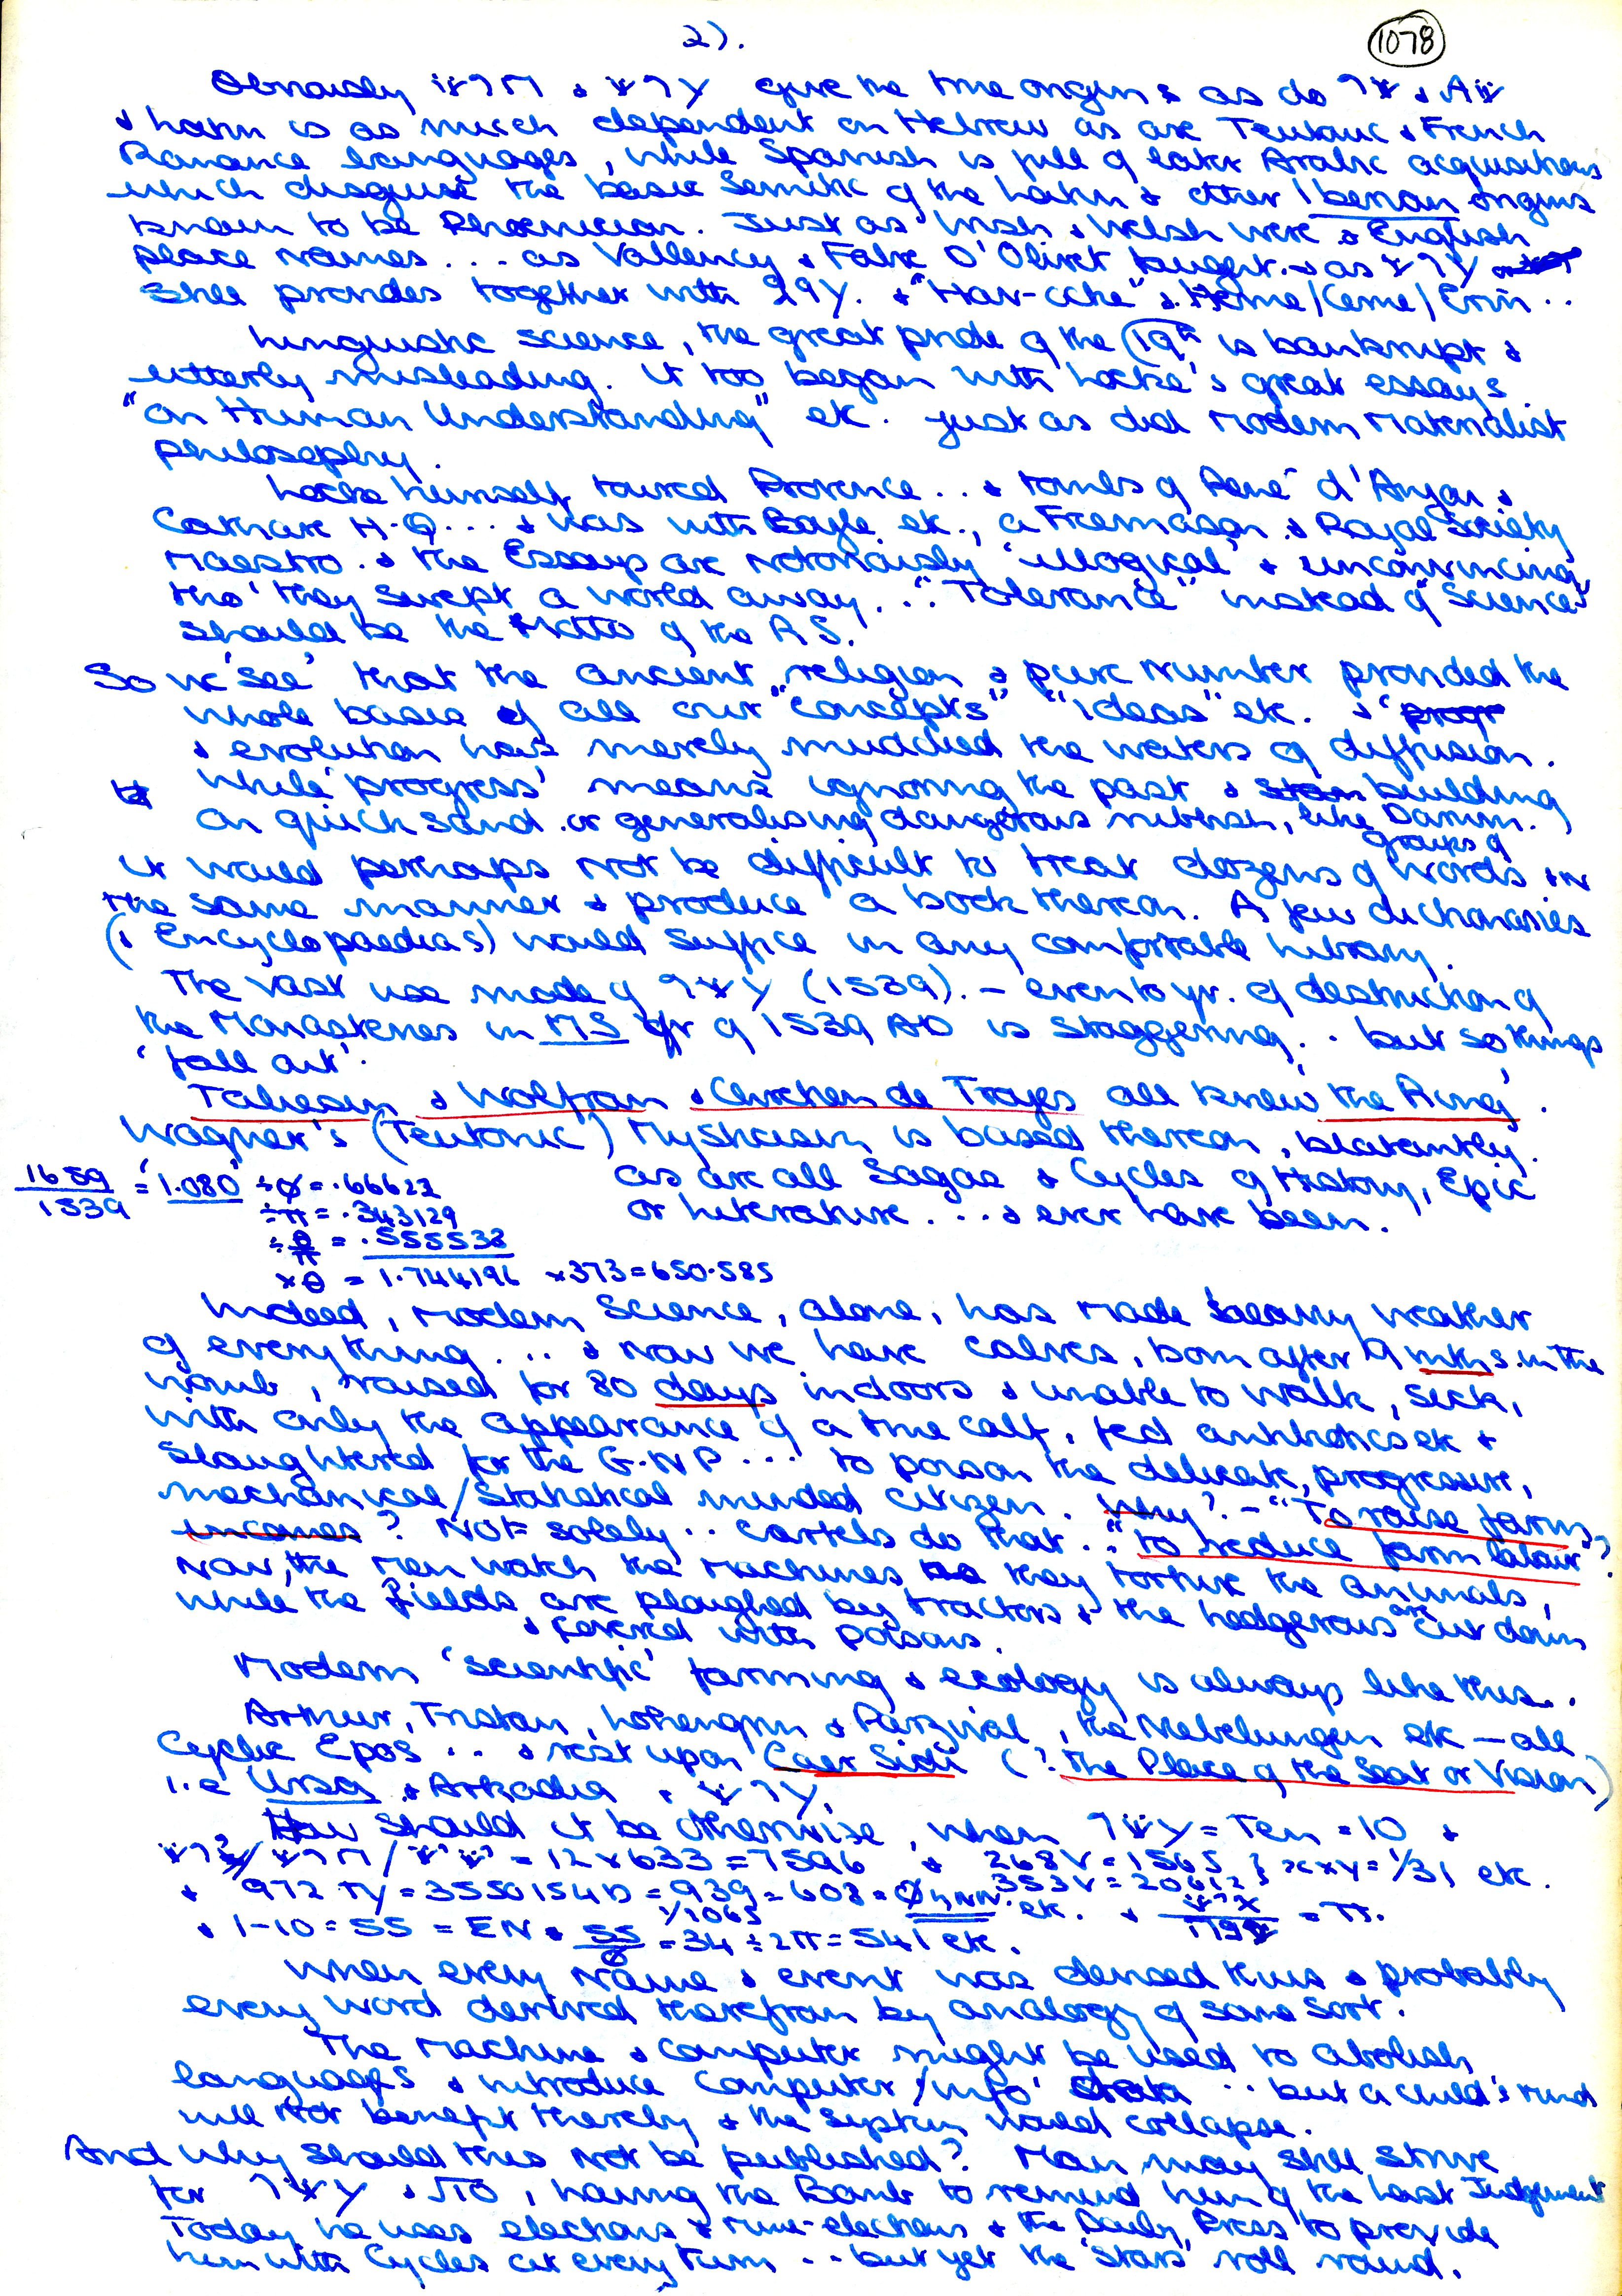 2).
1078
Obviously & give the true origins as do &
& Latin is as much dependent on Hebrew as are Teutonic & French
Romance languages, while Spanish is full of later Arabic acquisitions
which disguise the basic Semitic of the Latin & other Iberian origins
known to be Phoenician. Just as Irish & Welsh were & English
place names ... as Vallency & Fabre D'Olivet taught. & as
still provides together with & "Har-
Linguistic science, the great pride of the 19th is bankrupt &
utterly misleading. It too began with Locke's great essays
"on Human Understanding" etc. just as did Modern Materialist
Philosophy.
Locke himself toured Provence ... & tombs of René d'Anjou &
Cathare H.Q... & was with Boyle etc., a Freemason & Royal Society
Maestro. & the Essays are notoriously 'illogical' & unconvincing,
tho' they swept a world away... "Tolerance" instead of "Science"
should be the Motto of the R.S.
So we 'see' that the ancient religion & pure number provided the
whole basis of all our "concepts" "ideas" etc. & 'progr
& evolution has merely muddied the waters of diffusion.
While 'progress' means ignoring the past & building
on quicksand or generalising dangerous rubbish, like Darwin.
It would perhaps not be difficult to treat dozens of groups of words in
the same manner & produce a book thereon. A few dictionaries
(& Encyclopaedias) would suffice in any comfortable library.
The vast use made of (1539). - even to yr. of destruction of
the Monasteries in MS yr of 1539 AD is staggering.. but so things
'fall out'.
Taliesin & Wolfram & Chrétien de Troyes all knew 'the Ring'.
Wagner's (Teutonic) Mysticism is based thereon, blatantly.
as are all Sagas & Cycles of History, Epic
or Literature ... & ever have been.
1659/1539 = '1.080' ÷ φ = .66622
÷ π = .343129
= .555538
= 1.744196 × 373 = 650.585
Indeed, Modern Science, alone, has made heavy weather
of everything ... & now we have calves, born after 9 mths. in the
womb, raised for 80 days indoors & unable to walk, sick,
with only the appearance of a true calf, fed antibiotics etc &
slaughtered for the G.N.P ... to poison the delicate, progressive,
mechanical/Statistical minded citizen. Why? - "To raise farm
incomes? Not solely .. cartels do that .. "to reduce farm labour"?
Now, the men watch the machines they torture the animals,
while the fields are ploughed by tractors & the hedgerows are cut down
& covered with poisons.
Modern 'scientific' farming & ecology is always like this..
Arthur, Tristan, Lohengrin & Parzival, the Niebelungen etc - all
Cyclic Epos .. & rest upon Caer Sidi (? the Place of the Seat or Vision)
i.e Ursa & Arkadia
How should it be otherwise, when = Ten = 10 &
= 12 × 633 = 7596 & 268V = 1565 } x×y = 1/31 etc.
& 972 = = 939 = 608 = etc. & = π.
& 1-10 = 55 = EN & 55/φ = 34 ÷ 2π = 541 etc.
When every Name & event was devised thus & probably
every word derived therefrom by analogy of some sort.
The Machine & computer might be used to abolish
languages & introduce computer/'info' .. but a child's mind
will not benefit thereby & the system would collapse.
And why should this not be published? Man may still strive
for & , having the Bomb to remind him of the Last Judgement
Today he uses elections & & the Daily Press to provide
him with Cycles at every turn .. but yet the 'stars' roll round.